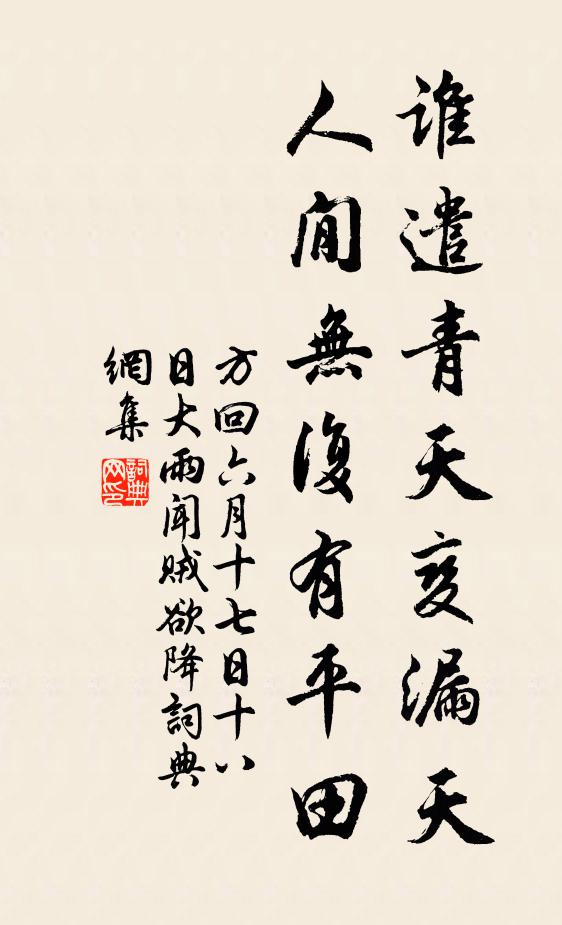 谁遣青天变漏天
人间無復有平田
方回六月十七日十八
日大雨闻贼欲降詞典
網集
詞典网印